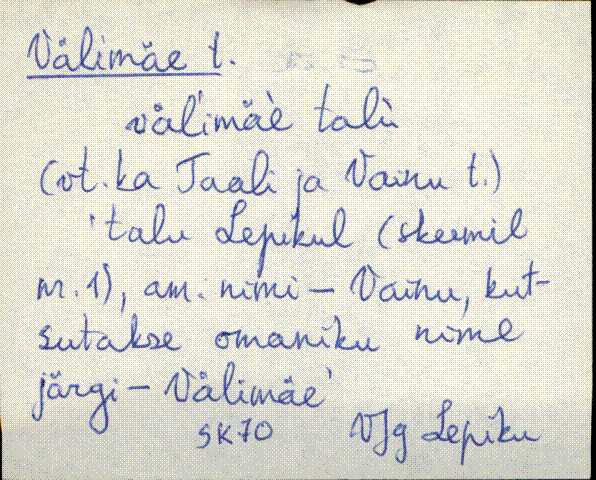 Välimäe t.
väl'imäe talu
(vt. ka Taali ja Vainu t.)
'talu Lepikul (skeemil
nr. 1), am. nimi – Vainu, kut-
sutakse omaniku nime
järgi – Välimäe'
SK70 VJg Lepiku